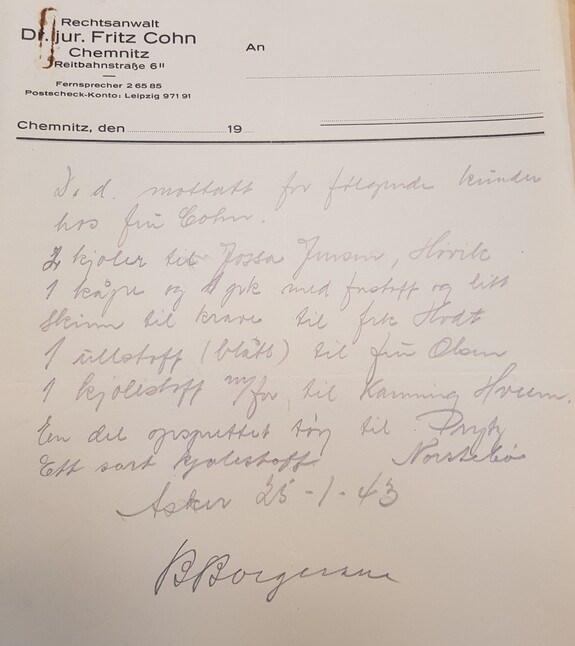 Rechtsanwalt
Dr. jur. Fritz Cohn
Chemnitz
Reitbahnstraße 6 II
Fernsprecher 2 65 85
Postscheck-Konto: Leipzig 971 91
An
Chemnitz, den 19
D. d. mottatt for følgende kunder
hos fru Cohn.
2 kjoler til Jossa Jensen, Høvik
1 kåpe og 1 pk med forstoff og litt
Skinn til krave til frk Hodt
1 ullstoff (blått) til fru Olsen
1 kjolestoff m/for til Hveem.
En del opsprettet tøy til
Ett sort kjolestoff
Asker 25-1-43
B Borgersen